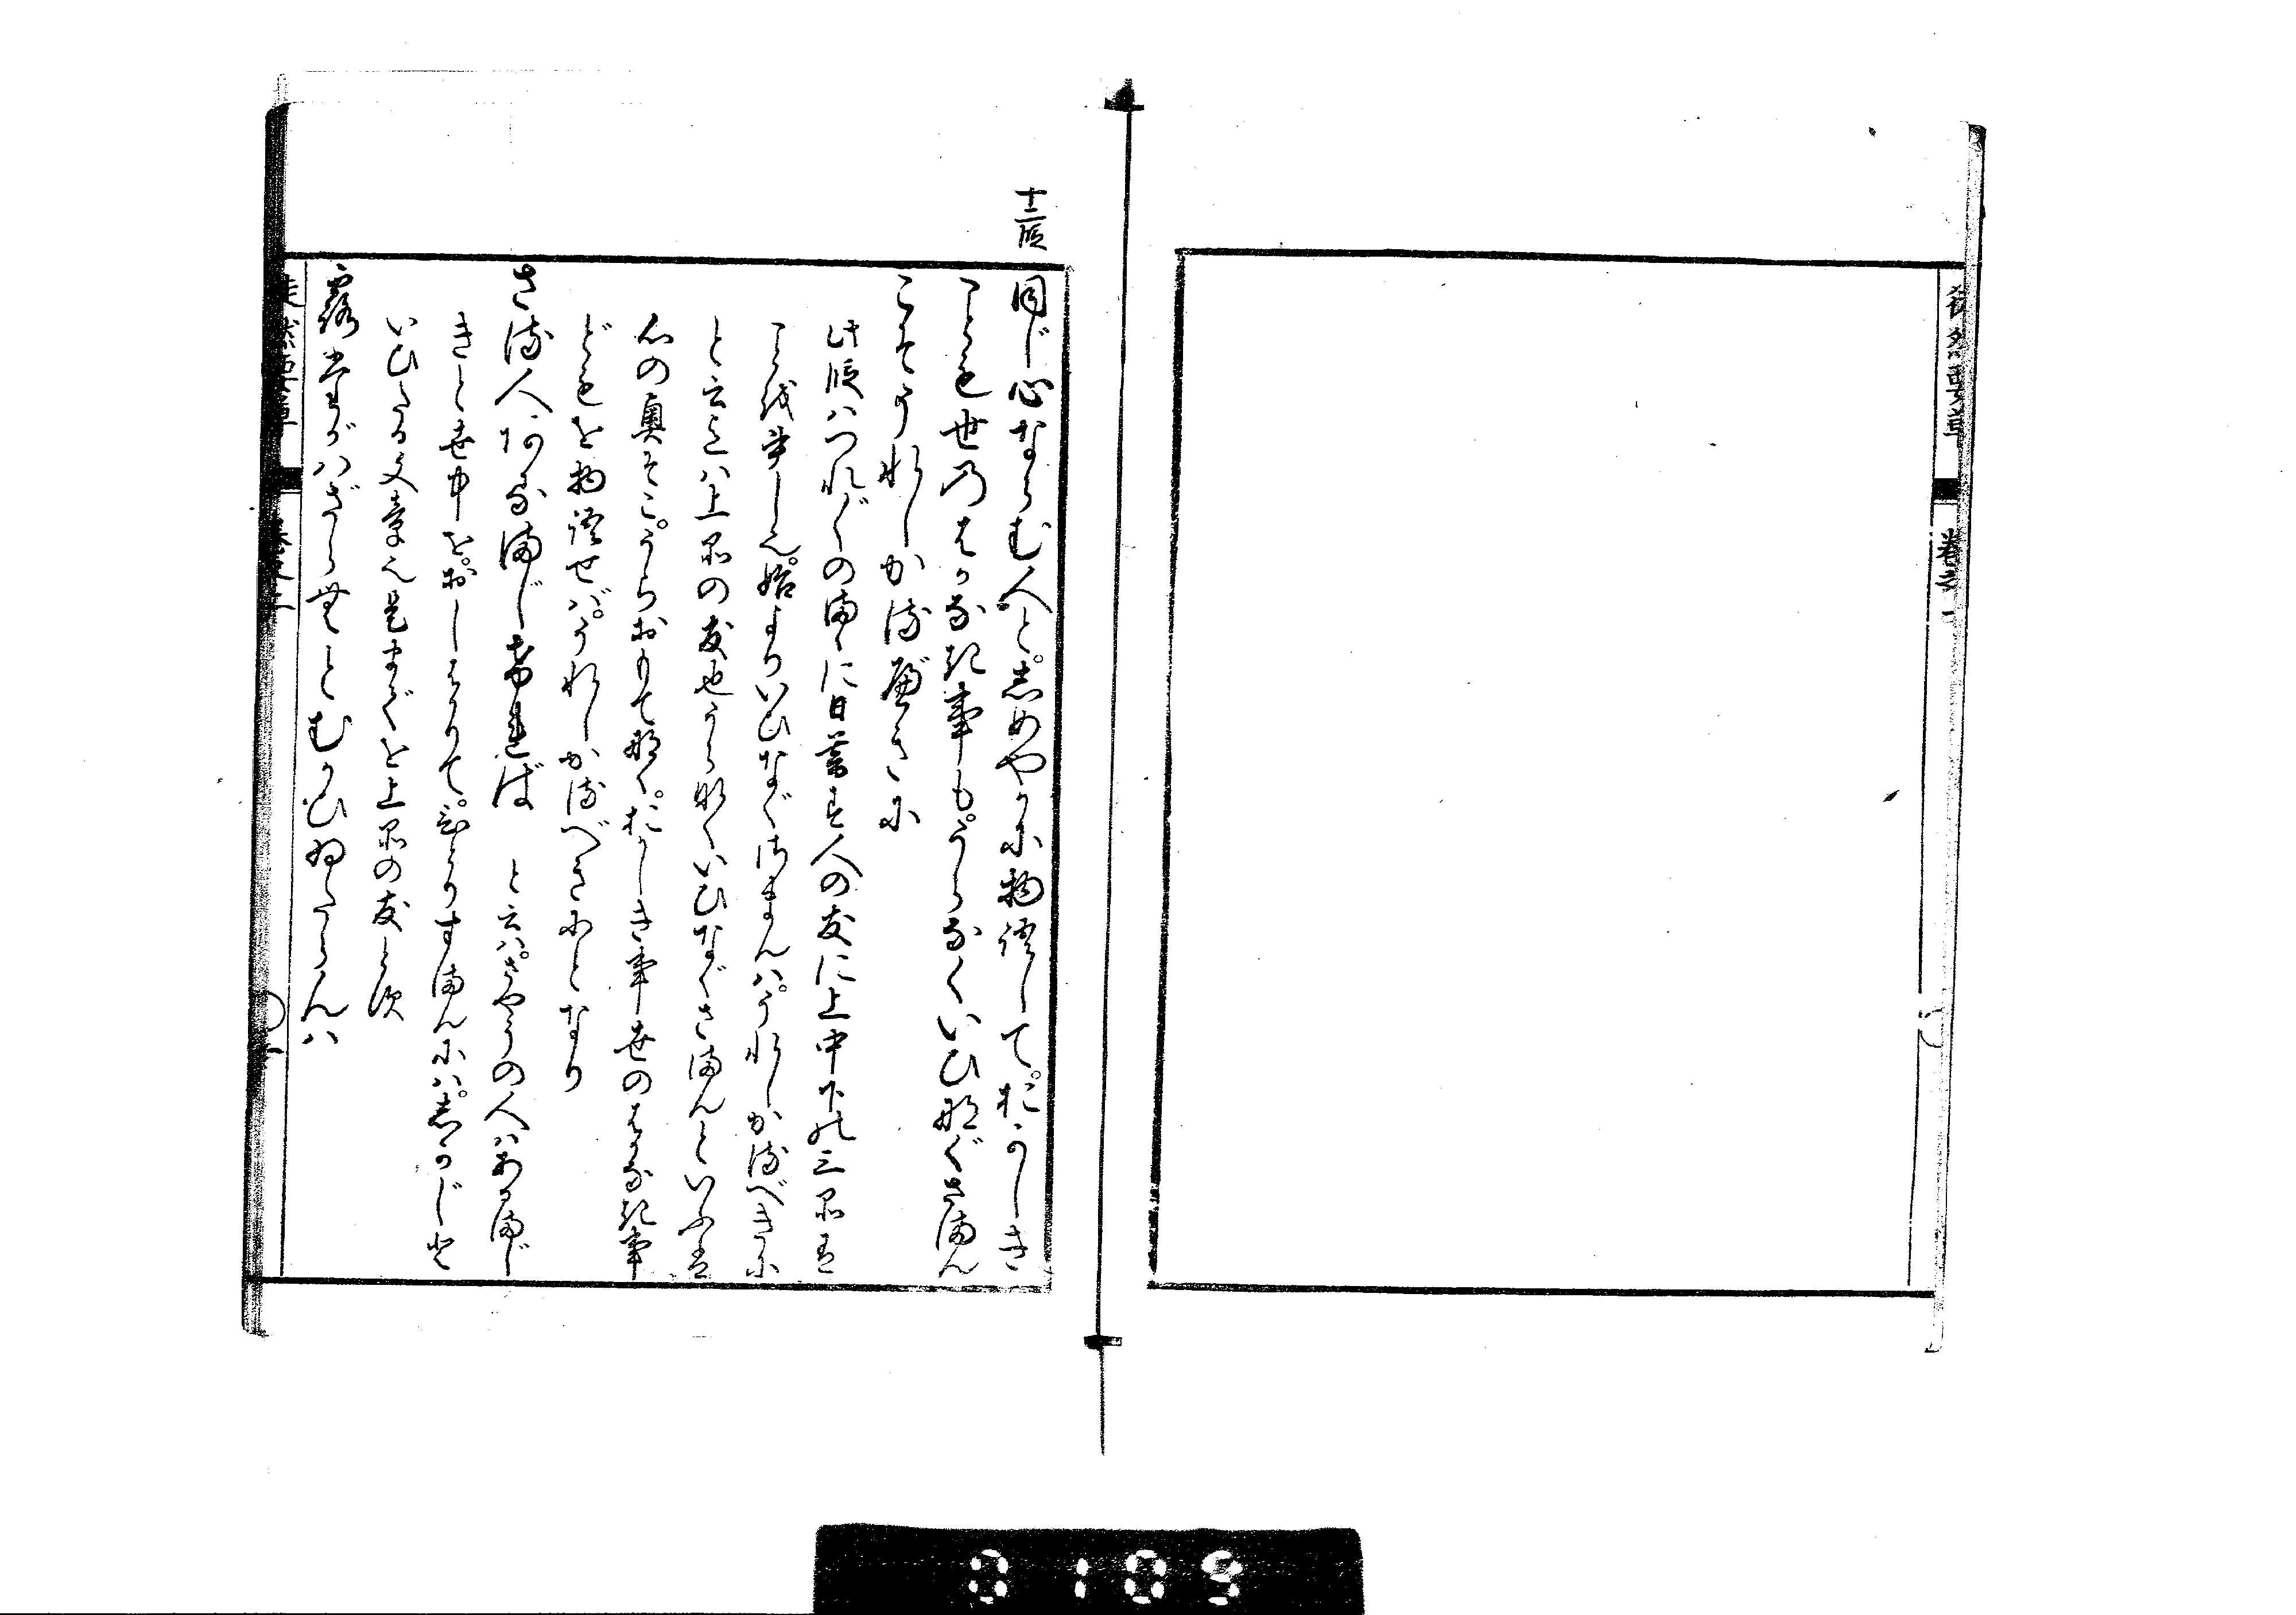 徒然要草 巻之一
十二段
同じ心ならむ人と。志めやかに物語して。おかしき
ことも世のはかなき事も。うらなくいひなぐさまん
こそうれしかるべきに
此段はつれ〴〵のまゝに日暮す人の友に上中下の三品を
と云意は上品の友也うらなくいひなぐさまんといふは
心の奥そこ。うらおもて那く。おかしき事世のはかなき事
どもを物語せば。うれしかるべきにとなり
さる人あるまじければ　と云は。さやうの人はあるまじ
きと世中を。おしはかりて。ひとりすまんには。志かじと
いひたる文章也是までを上品の友とす
露たがはざらむとむかひゐたらんは
徒然要草